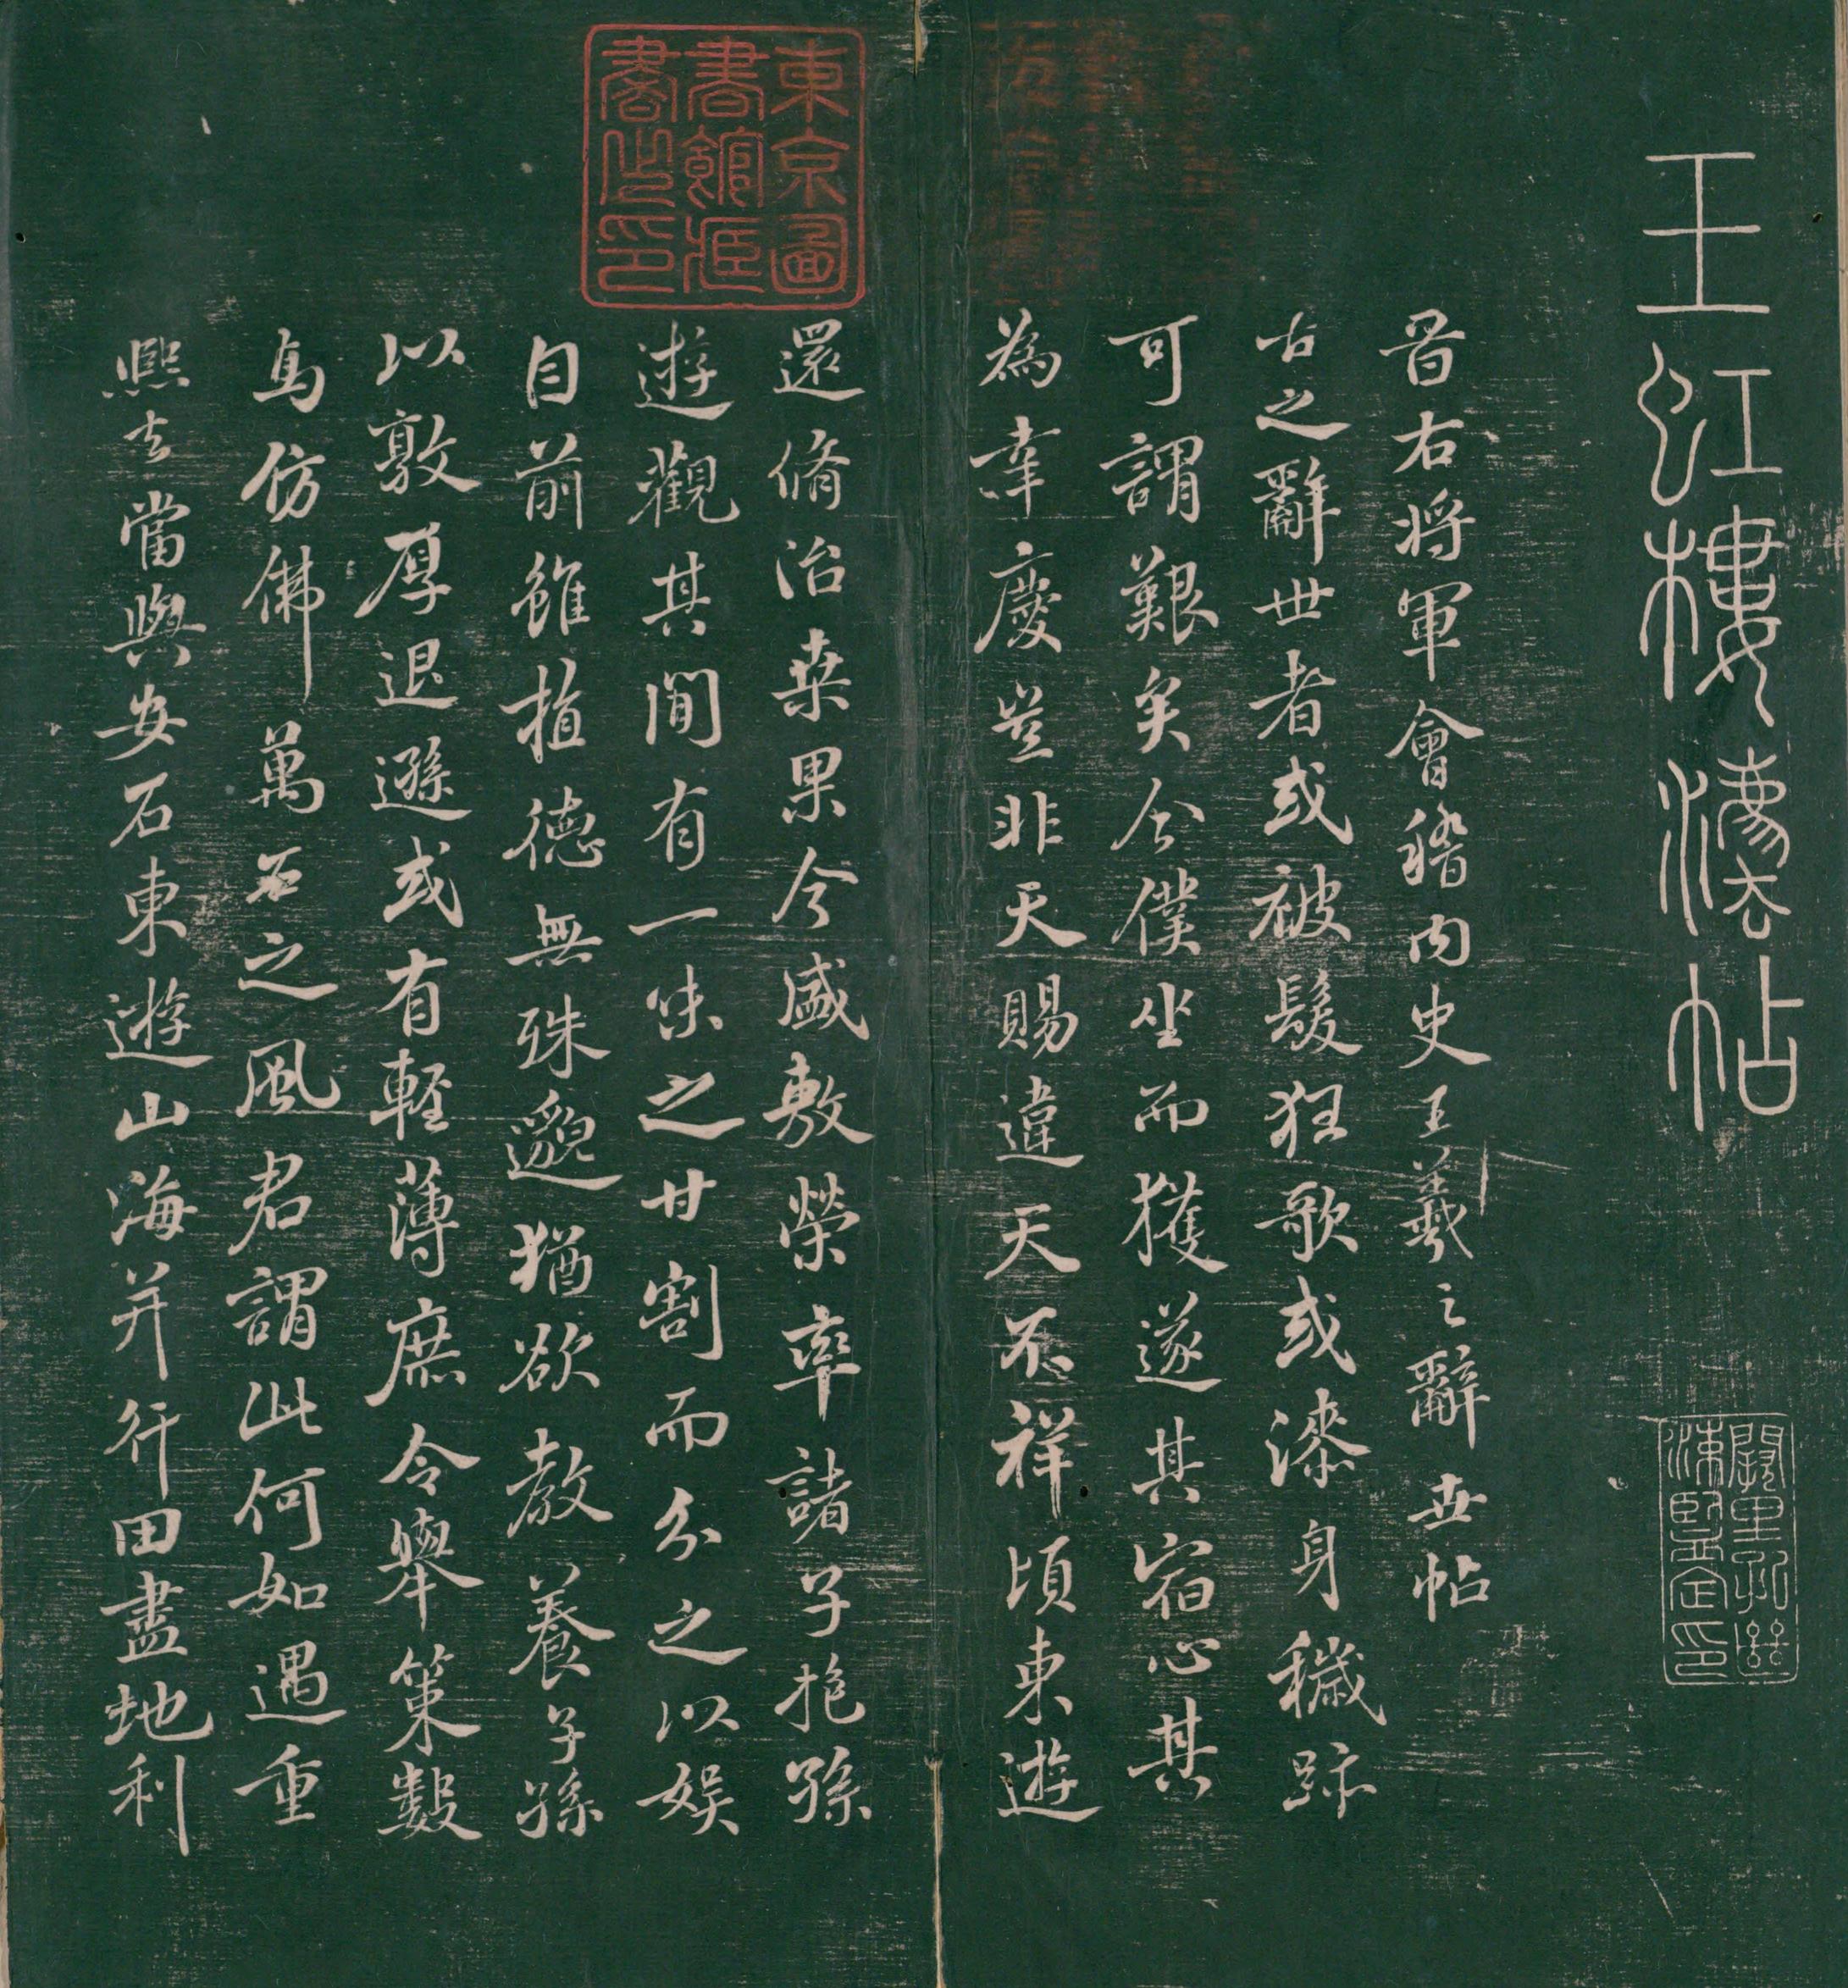 玉虹樓灋帖
闕里孔繼涑鑒定印
晉右將軍會稽内史王羲之辭世帖
古之辭世者或被髮狂歌或漆身穢跡
可謂艱矣今僕坐而獲遂其宿心其
為幸慶豈非天賜違天不祥頃東遊
還脩治桑果今盛敷榮率諸子抱孫
遊觀其間有一味之甘割而分之以娱
目前雖植德無殊邈猶欲教養子孫
以敦厚退遜或有輕薄庶令舉策數
馬仿佛萬石之風君謂此何如遇重
熙去當與安石東遊山海并行田盡地利
東京圖
書館藏
書之印